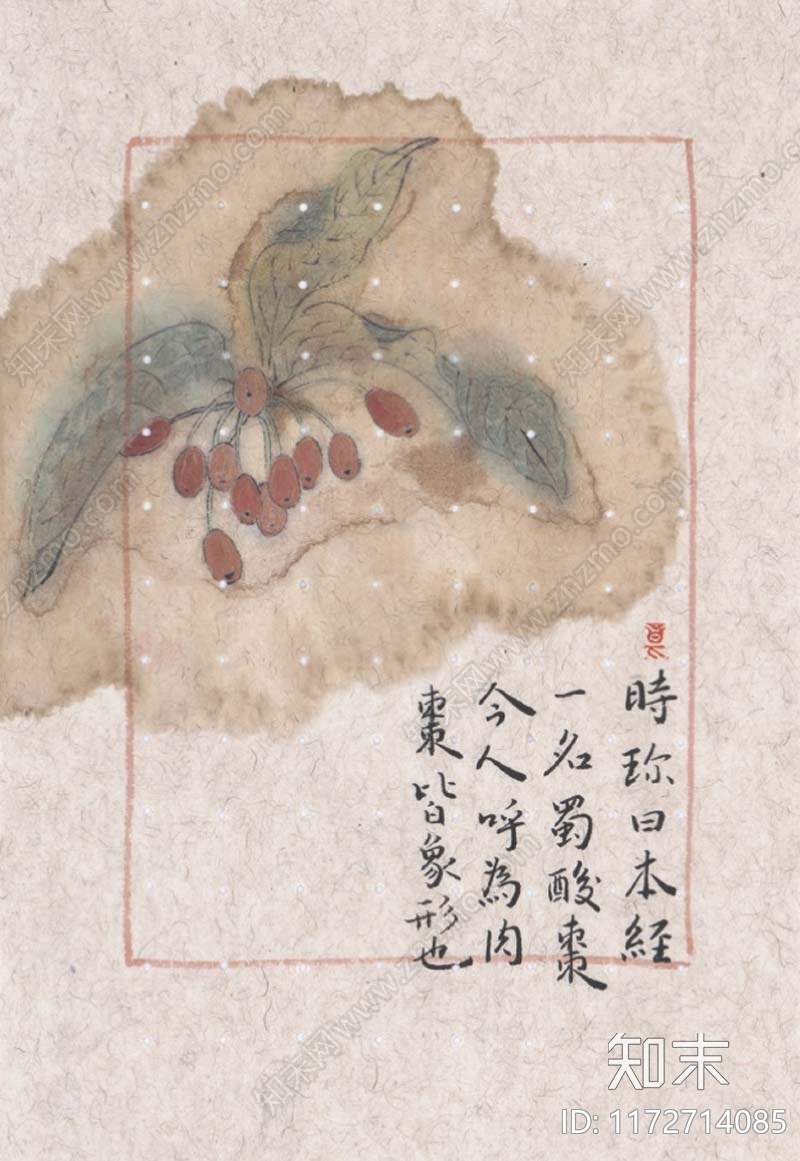 時珍曰本經
一名蜀酸棗
今人呼為肉
棗皆象形也
知末
ID: 1172714085
知末网www.znzmo.com